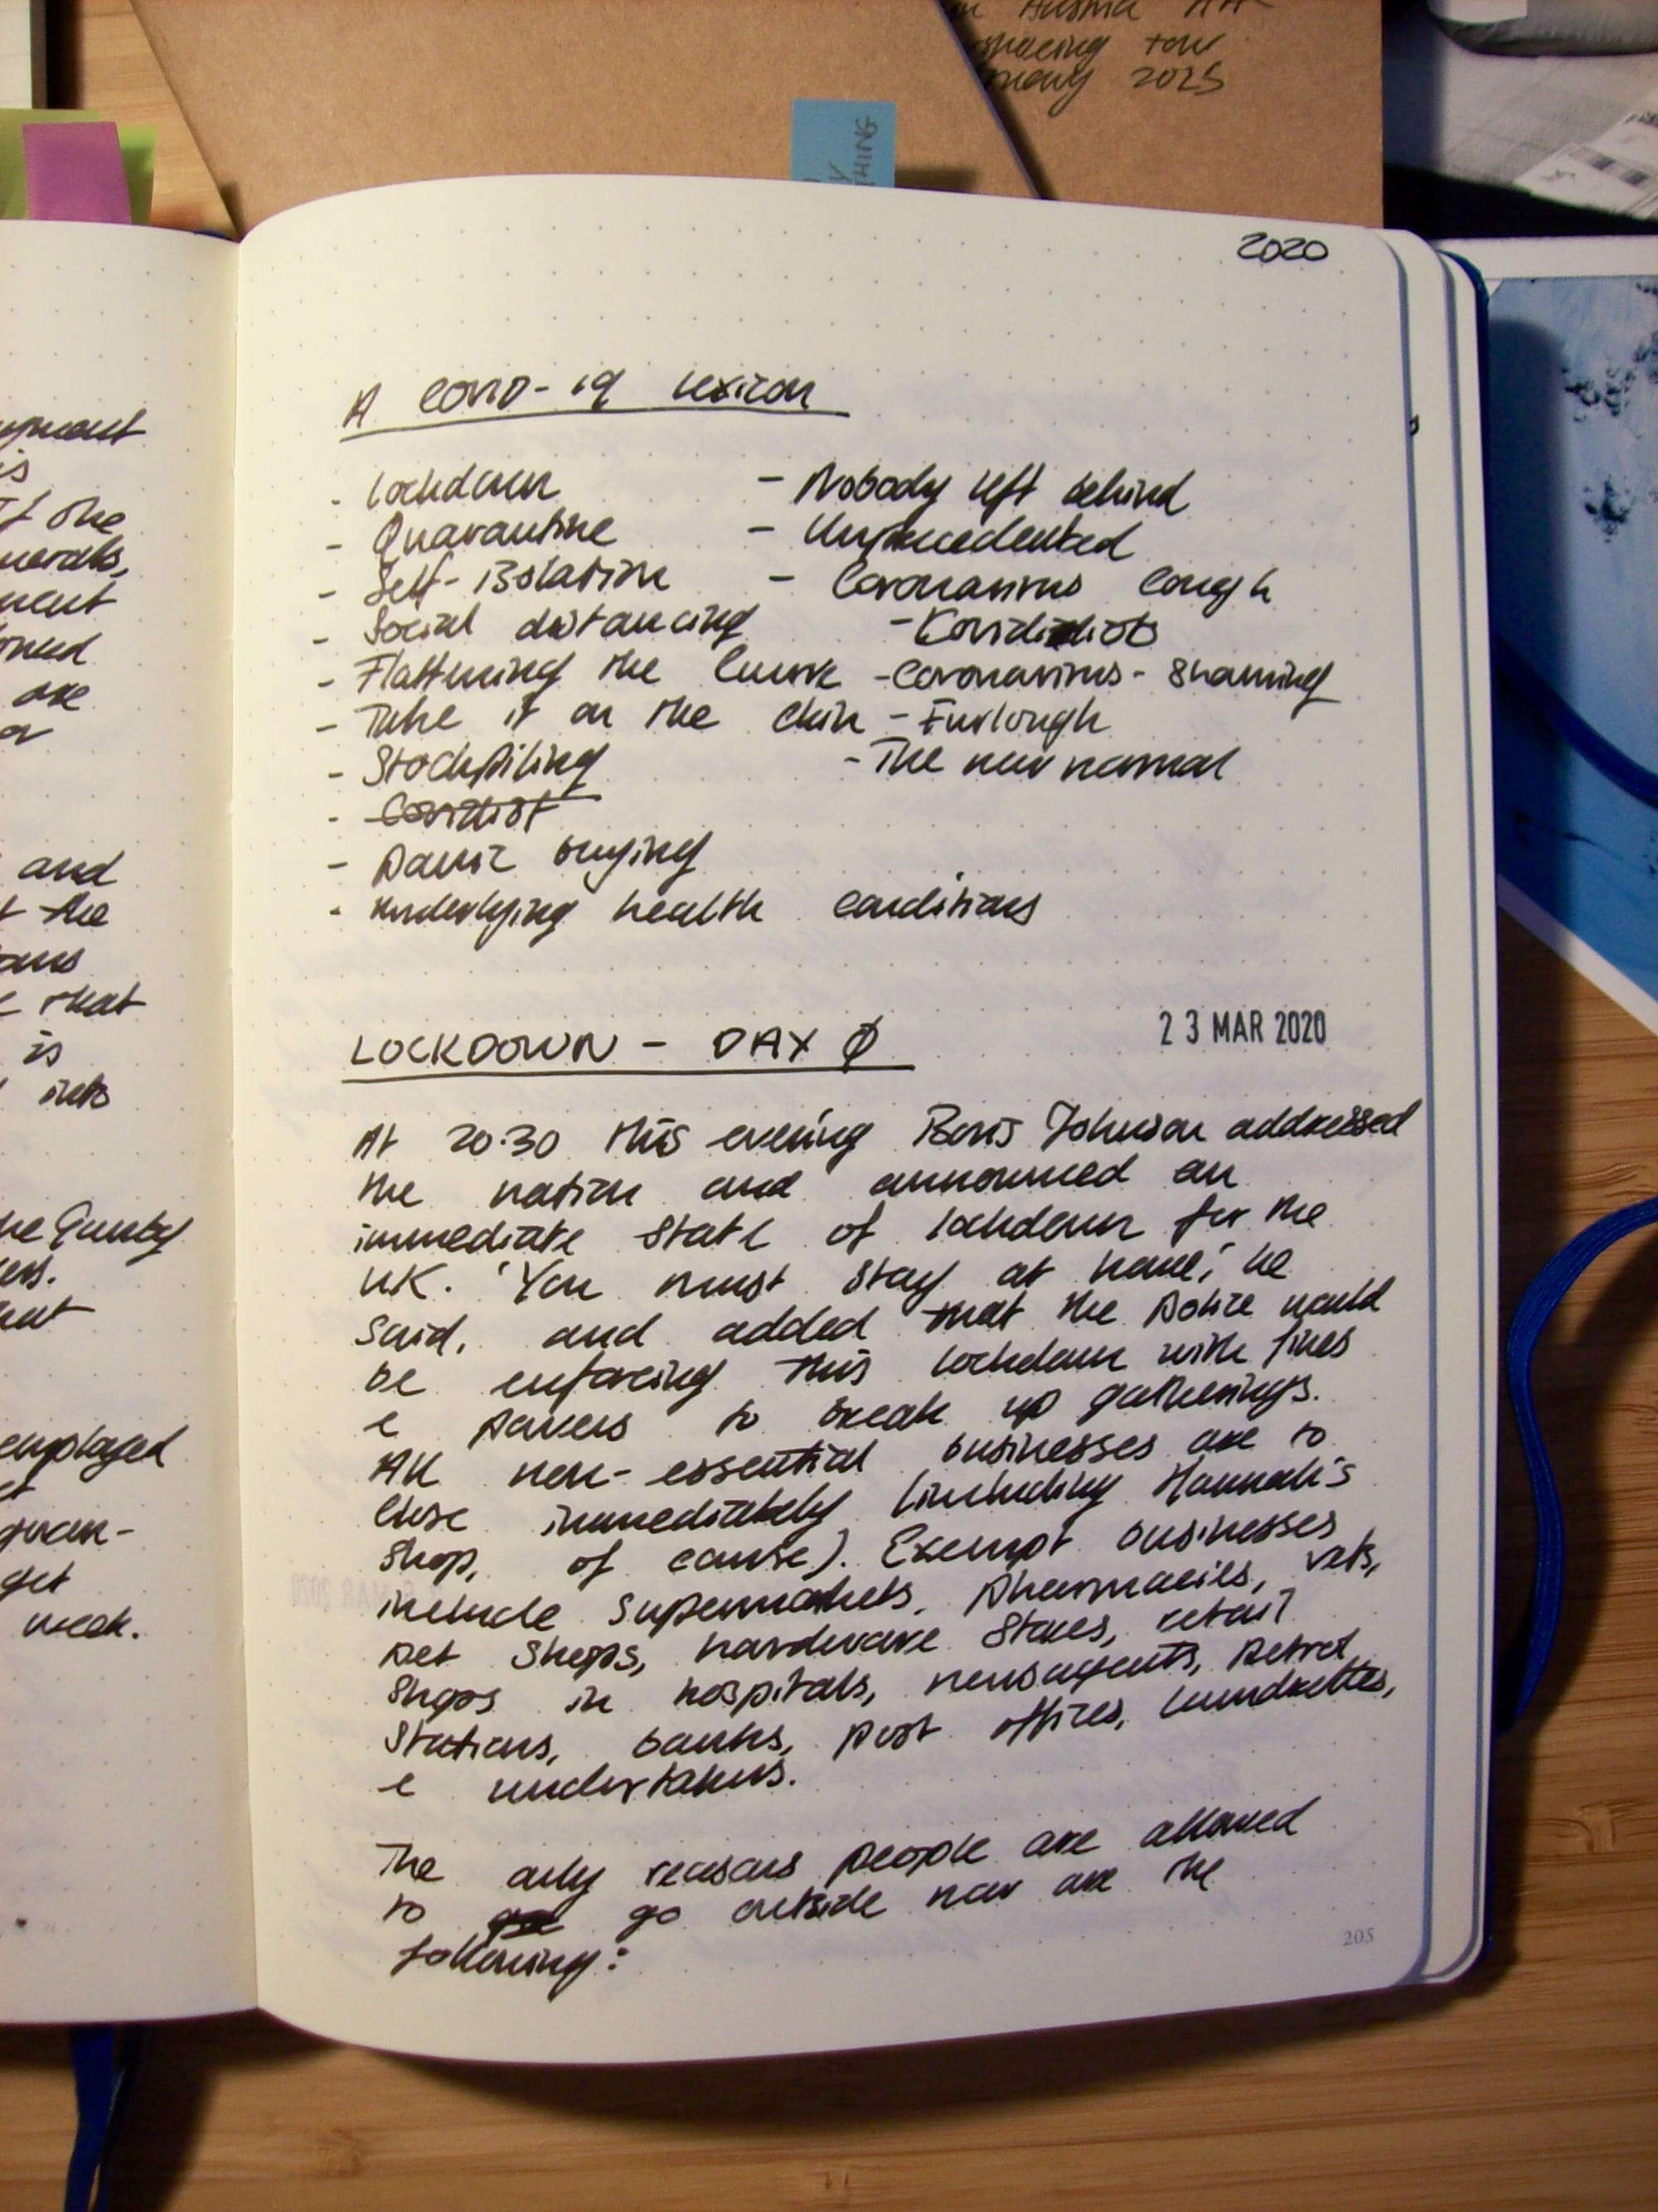 Austria
spacing
2025
THING
2020
A COVID-19 Lexicon
- Lockdown
- Quarantine
- Self-isolation
- Social distancing
- Flattening the curve
- Take it on the chin
- Stockpiling
- Covidiot
- Panic buying
- Underlying health conditions
- Nobody left behind
- Unprecedented
- Coronavirus cough
- Covidiots
- Coronavirus-shaming
- Furlough
- The new normal
LOCKDOWN - DAY Ø
23 MAR 2020
At 20:30 this evening Boris Johnson addressed
the nation and announced an
immediate state of lockdown for the
UK. 'You must stay at home,' he
said, and added that the police would
be enforcing this lockdown with fines
& powers to break up gatherings.
All non-essential businesses are to
close immediately (including Hannah's
shop, of course). Exempt businesses
include supermarkets, pharmacies, vets,
pet shops, hardware stores, retail
shops in hospitals, newsagents, petrol
stations, banks, post offices, laundrettes,
& undertakers.
The only reasons people are allowed
to go outside now are the
following:
205
is
the
are
and
the
that
is
into
employed
get
week.